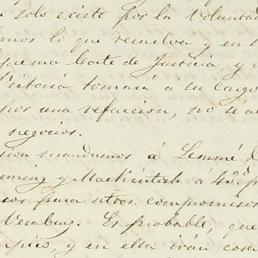 solo existe por la voluntad
mos lo que resuelva y en l
prema Corte de Justicia, y
Victoria tomará a su cargo
por una refacción, no te a
negocios.
mandamos á Lemmé
Fleming y Mackintosh a 43 p
sos para otros compromisos
Wemberg. Es probable, que
cipio, y en ella irán cosa